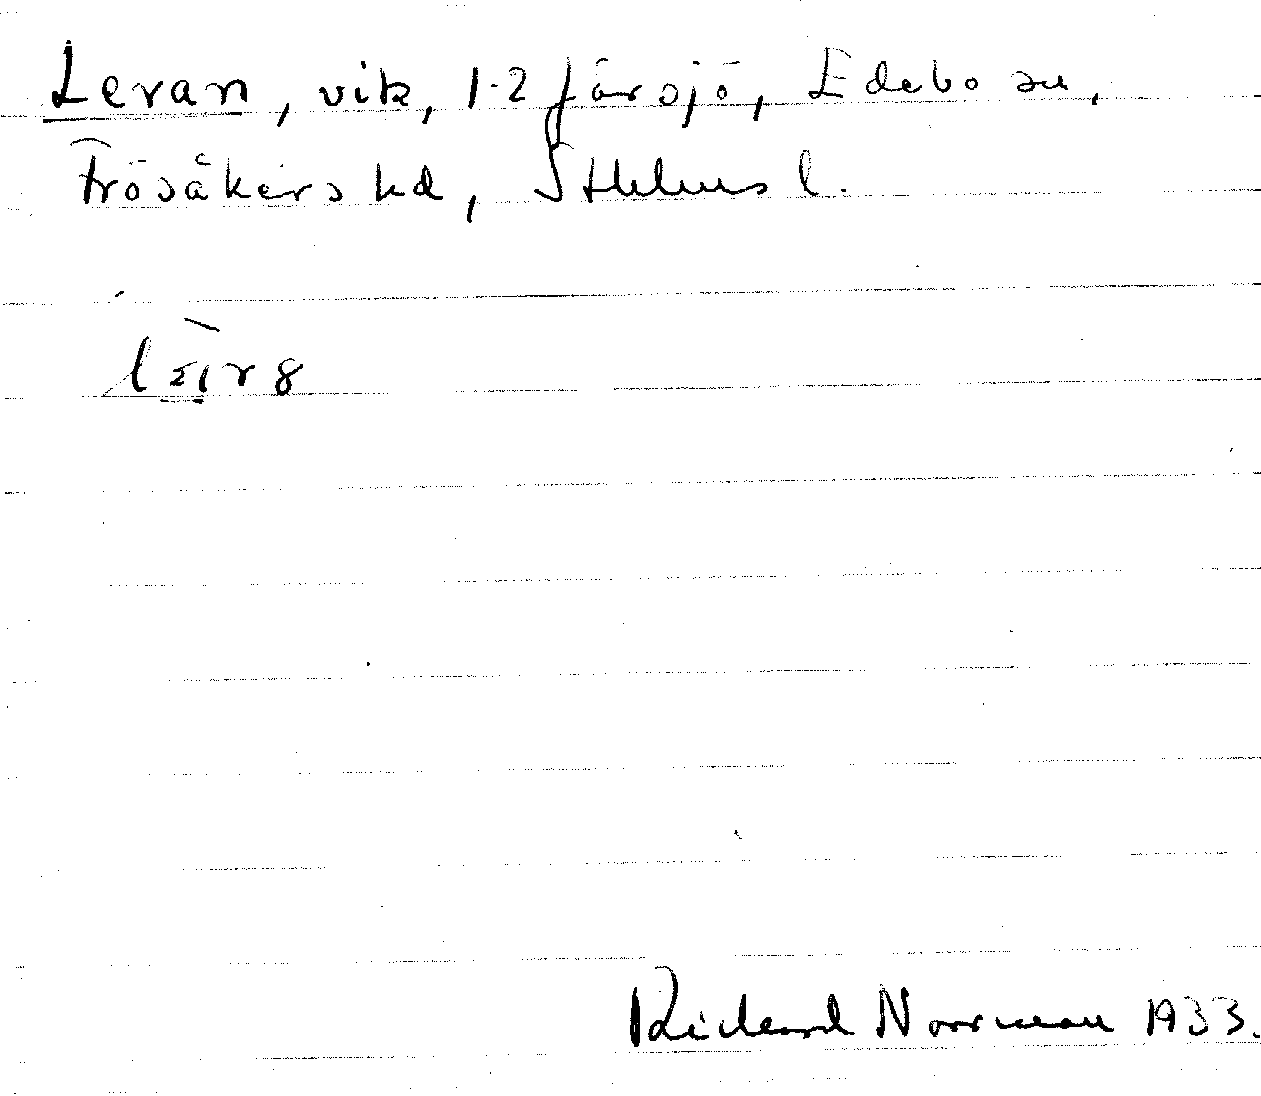 Levan, vik, 1-2 Järsjö, Edebo sn,
Frösåkers hd, Sthlms l.
Richard Norrman 1933.